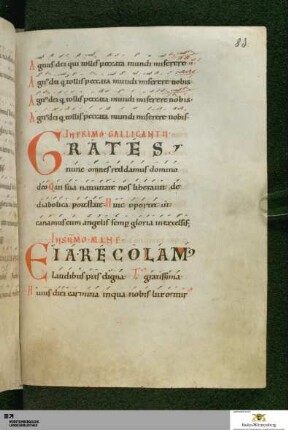 83
Agnus dei qui tollis peccata mundi miserere
Agn' dei q tollis peccata mundi miserere nobis
Agn' dei q tollis peccata mundi miserere nobis
Agn' dei q tollis peccata mundi miserere nobis
IN PRIMO GALLICANTU
GRATES
nunc omnes reddamus domino
deo Qui sua nativitate nos liberavit de
diabolica potestate Huic oportet ut
canamus cum angelis semp gloria in excelsis
IN SUMMO MANE
EIA RECOLAM'
laudibus piis digna
Huius diei carmina in qua nobis lux oritur
gratissima